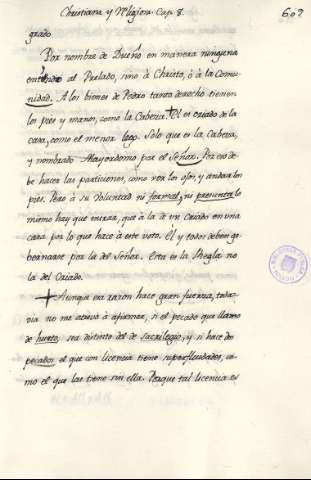 Christiana y Religiosa Cap. 8.
607
grado
Por nombre de Dueño en manera ninguna
entiendo al Prelado, sino à Christo, ò à la Comu-
nidad. A los bienes de Pedro tanto derecho tienen
los pies y manos, como la Cabeza. + El es criado de la
casa, como el menor lego. Solo que es la Cabeza,
y nombrado Mayordomo por el Señor. Por eso de-
be hacer las particiones, como ven los ojos, y andan los
pies. Pero à su Voluntad ni formal, ni presunta lo
mismo hay que mirar, que à la de un Criado en una
casa por lo que hace à este voto. El y todos deben go-
bernarse por la del Señor. Esta es la Regla no
la del Criado.
+ Aunque esa razon hace gran fuerza, toda-
via no me atrevo à afirmar, si el pecado que llamo
de hurto, sea distinto del de sacrilegio, y si hace dos
pecados el que con licencia tiene superfluidades, co-
mo el que las tiene sin ella. Porque tal licencia es